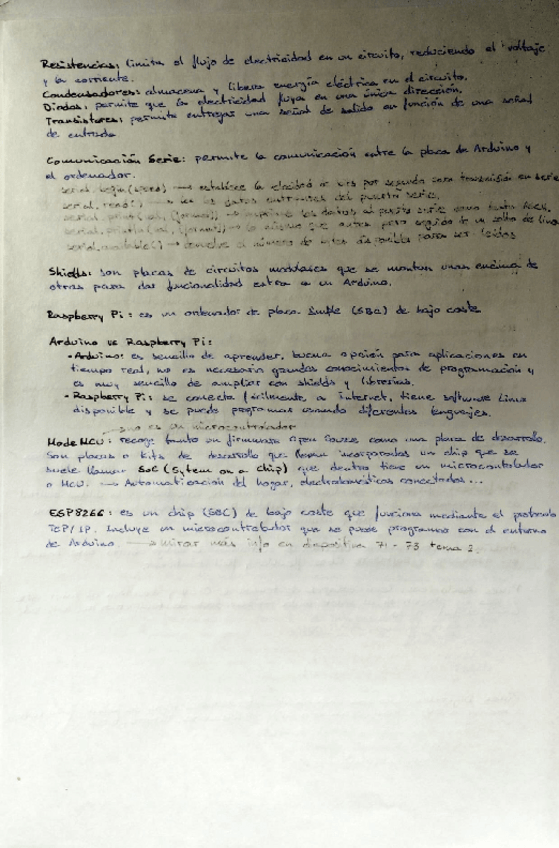 Resistencias: limita el flujo de electricidad en un circuito, reduciendo el voltaje
y la corriente.
Condensadores: almacena y libera energía eléctrica en el circuito.
Diodos: permite que la electricidad fluya en una única dirección.
Transistores: permite entregar una señal de salida en función de una señal
de entrada
Comunicación Serie: permite la comunicación entre la placa de Arduino y
el ordenador.
serial.begin(speed) → establece la velocidad en bits por segundo para transmisión en serie
serial.read() → lee los datos entrantes del puerto serie.
serial.print(val, [format]) → imprime los datos al puerto serie como texto ASCII.
serial.println(val, [format]) → lo mismo que antes pero seguido de un salto de línea
serial.available() → devuelve el número de bytes disponible para ser leídos
Shields: son placas de circuitos modulares que se montan unas encima de
otras para dar funcionalidad extra a un Arduino.
Raspberry Pi: es un ordenador de placa simple (SBC) de bajo coste
Arduino vs Raspberry Pi:
• Arduino: es sencillo de aprender, buena opción para aplicaciones en
tiempo real, no es necesario grandes conocimientos de programación y
es muy sencillo de ampliar con shields y librerías.
• Raspberry Pi: se conecta fácilmente a internet, tiene software Linux
disponible y se puede programar usando diferentes lenguajes.
→ no es un microcontrolador
Node MCU: recoge tanto un firmware Open Source como una placa de desarrollo.
Son placas o kits de desarrollo que llevan incorporados un chip que se
suele llamar SoC (Sytem on a chip) que dentro tiene un microcontrolador
o MCU. → Automatización del hogar, electrodomésticos conectados...
ESP8266: es un chip (SOC) de bajo coste que funciona mediante el protocolo
TCP/IP. Incluye un microcontrolador que se puede programar con el entorno
de Arduino. → mirar más info en diapositiva 71-73 tema 2.